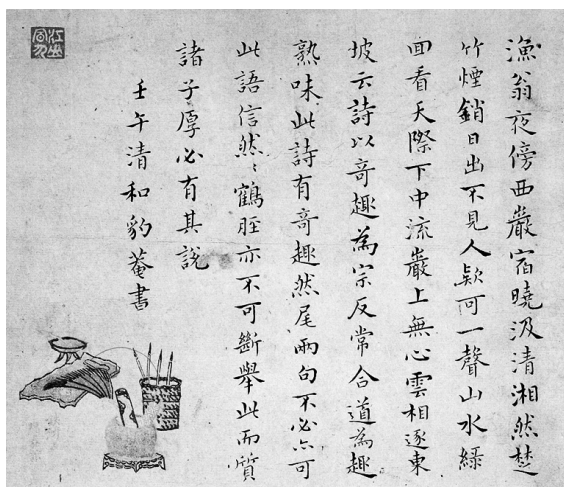 漁翁夜傍西巖宿曉汲清湘然楚
竹煙銷日出不見人欵可一聲山水緑
回看天際下中流巖上無心雲相逐東
坡云詩以竒趣為宗反常合道為趣
熟味此詩有竒趣然尾兩句不必亦可
此語信然〻鶴脛亦不可斷舉此而質
諸子厚必有其說
壬午清和豹菴書